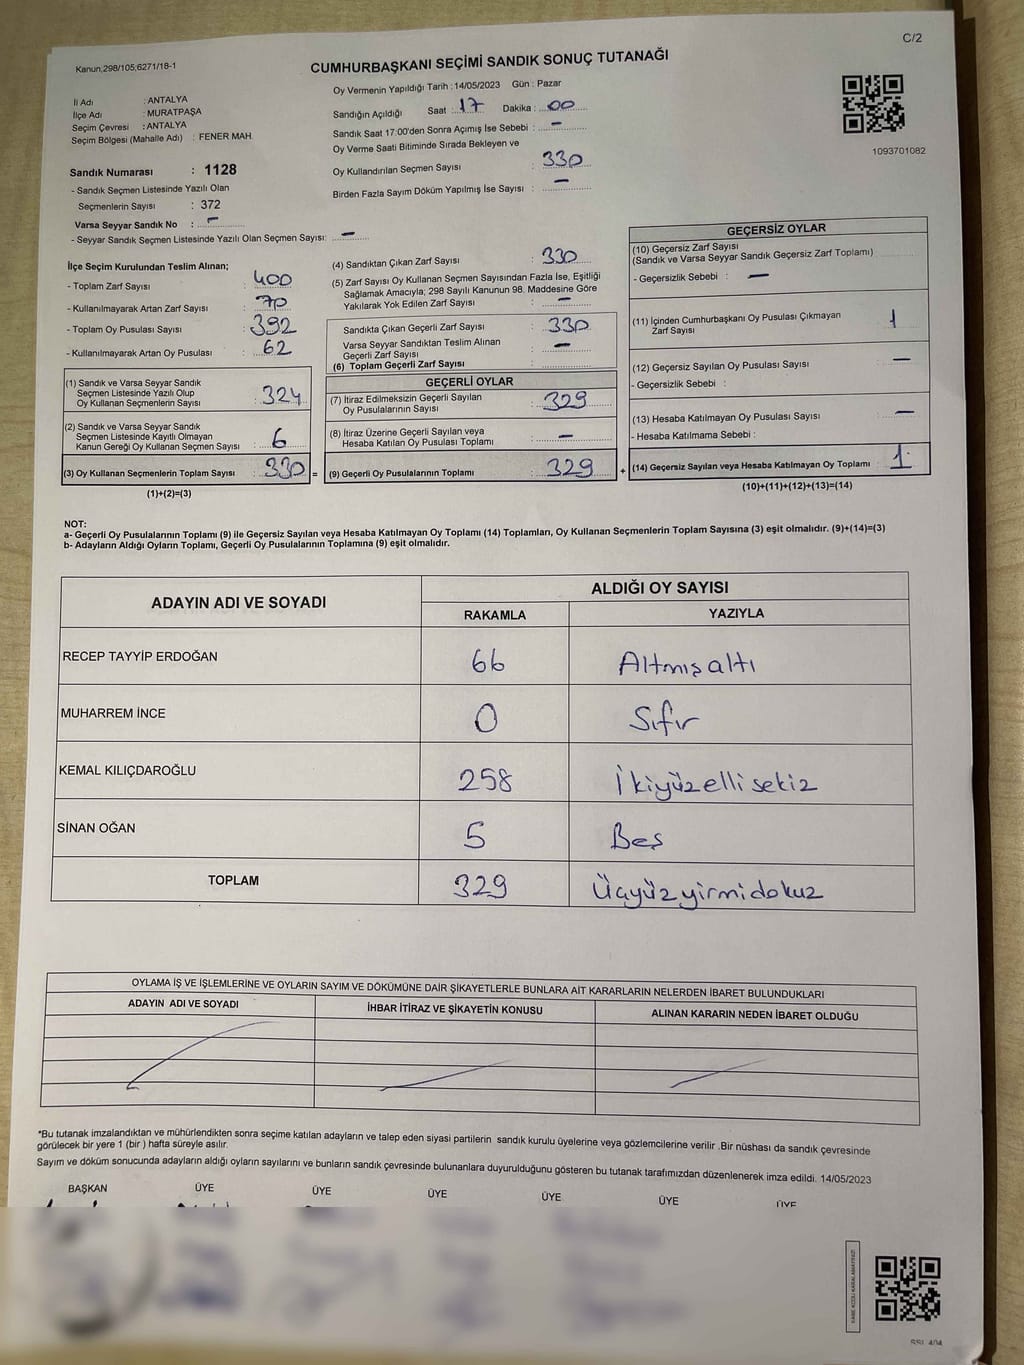 C/2
Kanun;298/105;6271/18-1
CUMHURBAŞKANI SEÇİMİ SANDIK SONUÇ TUTANAĞI
1093701082
İl Adı : ANTALYA
İlçe Adı : MURATPAŞA
Seçim Çevresi : ANTALYA
Seçim Bölgesi (Mahalle Adı) : FENER MAH.
Sandık Numarası : 1128
- Sandık Seçmen Listesinde Yazılı Olan
Seçmenlerin Sayısı : 372
Varsa Seyyar Sandık No : –
- Seyyar Sandık Seçmen Listesinde Yazılı Olan Seçmen Sayısı: –
Oy Vermenin Yapıldığı Tarih : 14/05/2023 Gün : Pazar
Sandığın Açıldığı Saat : 17 Dakika : 00
Sandık Saat 17:00'den Sonra Açımış İse Sebebi : –
Oy Verme Saati Bitiminde Sırada Bekleyen ve
Oy Kullandırılan Seçmen Sayısı : 330
Birden Fazla Sayım Döküm Yapılmış İse Sayısı : –
İlçe Seçim Kurulundan Teslim Alınan;
- Toplam Zarf Sayısı : 400
- Kullanılmayarak Artan Zarf Sayısı : 70
- Toplam Oy Pusulası Sayısı : 392
- Kullanılmayarak Artan Oy Pusulası : 62
(1) Sandık ve Varsa Seyyar Sandık
Seçmen Listesinde Yazılı Olup
Oy Kullanan Seçmenlerin Sayısı : 324
(2) Sandık ve Varsa Seyyar Sandık
Seçmen Listesinde Kayıtlı Olmayan
Kanun Gereği Oy Kullanan Seçmen Sayısı : 6
(3) Oy Kullanan Seçmenlerin Toplam Sayısı : 330 =
(1)+(2)=(3)
(4) Sandıktan Çıkan Zarf Sayısı : 330
(5) Zarf Sayısı Oy Kullanan Seçmen Sayısından Fazla İse, Eşitliği
Sağlamak Amacıyla; 298 Sayılı Kanunun 98. Maddesine Göre
Yakılarak Yok Edilen Zarf Sayısı : –
Sandıkta Çıkan Geçerli Zarf Sayısı : 330
Varsa Seyyar Sandıktan Teslim Alınan
Geçerli Zarf Sayısı : –
(6) Toplam Geçerli Zarf Sayısı :
GEÇERLİ OYLAR
(7) İtiraz Edilmeksizin Geçerli Sayılan
Oy Pusulalarının Sayısı : 329
(8) İtiraz Üzerine Geçerli Sayılan veya
Hesaba Katılan Oy Pusulası Toplamı : –
(9) Geçerli Oy Pusulalarının Toplamı : 329 +
GEÇERSİZ OYLAR
(10) Geçersiz Zarf Sayısı
(Sandık ve Varsa Seyyar Sandık Geçersiz Zarf Toplamı)
- Geçersizlik Sebebi : –
(11) İçinden Cumhurbaşkanı Oy Pusulası Çıkmayan
Zarf Sayısı 1
(12) Geçersiz Sayılan Oy Pusulası Sayısı –
- Geçersizlik Sebebi :
(13) Hesaba Katılmayan Oy Pusulası Sayısı –
- Hesaba Katılmama Sebebi :
(14) Geçersiz Sayılan veya Hesaba Katılmayan Oy Toplamı 1
(10)+(11)+(12)+(13)=(14)
NOT:
a- Geçerli Oy Pusulalarının Toplamı (9) ile Geçersiz Sayılan veya Hesaba Katılmayan Oy Toplamı (14) Toplamları, Oy Kullanan Seçmenlerin Toplam Sayısına (3) eşit olmalıdır. (9)+(14)=(3)
b- Adayların Aldığı Oyların Toplamı, Geçerli Oy Pusulalarının Toplamına (9) eşit olmalıdır.
ADAYIN ADI VE SOYADI ALDIĞI OY SAYISI
RAKAMLA YAZIYLA
RECEP TAYYİP ERDOĞAN 66 Altmışaltı
MUHARREM İNCE 0 Sıfır
KEMAL KILIÇDAROĞLU 258 İkiyüzellisekiz
SİNAN OĞAN 5 Beş
TOPLAM 329 Üçyüzyirmidokuz
OYLAMA İŞ VE İŞLEMLERİNE VE OYLARIN SAYIM VE DÖKÜMÜNE DAİR ŞİKAYETLERLE BUNLARA AİT KARARLARIN NELERDEN İBARET BULUNDUKLARI
ADAYIN ADI VE SOYADI İHBAR İTİRAZ VE ŞİKAYETİN KONUSU ALINAN KARARIN NEDEN İBARET OLDUĞU
*Bu tutanak imzalandıktan ve mühürlendikten sonra seçime katılan adayların ve talep eden siyasi partilerin sandık kurulu üyelerine veya gözlemcilerine verilir .Bir nüshası da sandık çevresinde
görülecek bir yere 1 (bir ) hafta süreyle asılır.
Sayım ve döküm sonucunda adayların aldığı oyların sayılarını ve bunların sandık çevresinde bulunanlara duyurulduğunu gösteren bu tutanak tarafımızdan düzenlenerek imza edildi. 14/05/2023
BAŞKAN ÜYE ÜYE ÜYE ÜYE ÜYE ÜYE